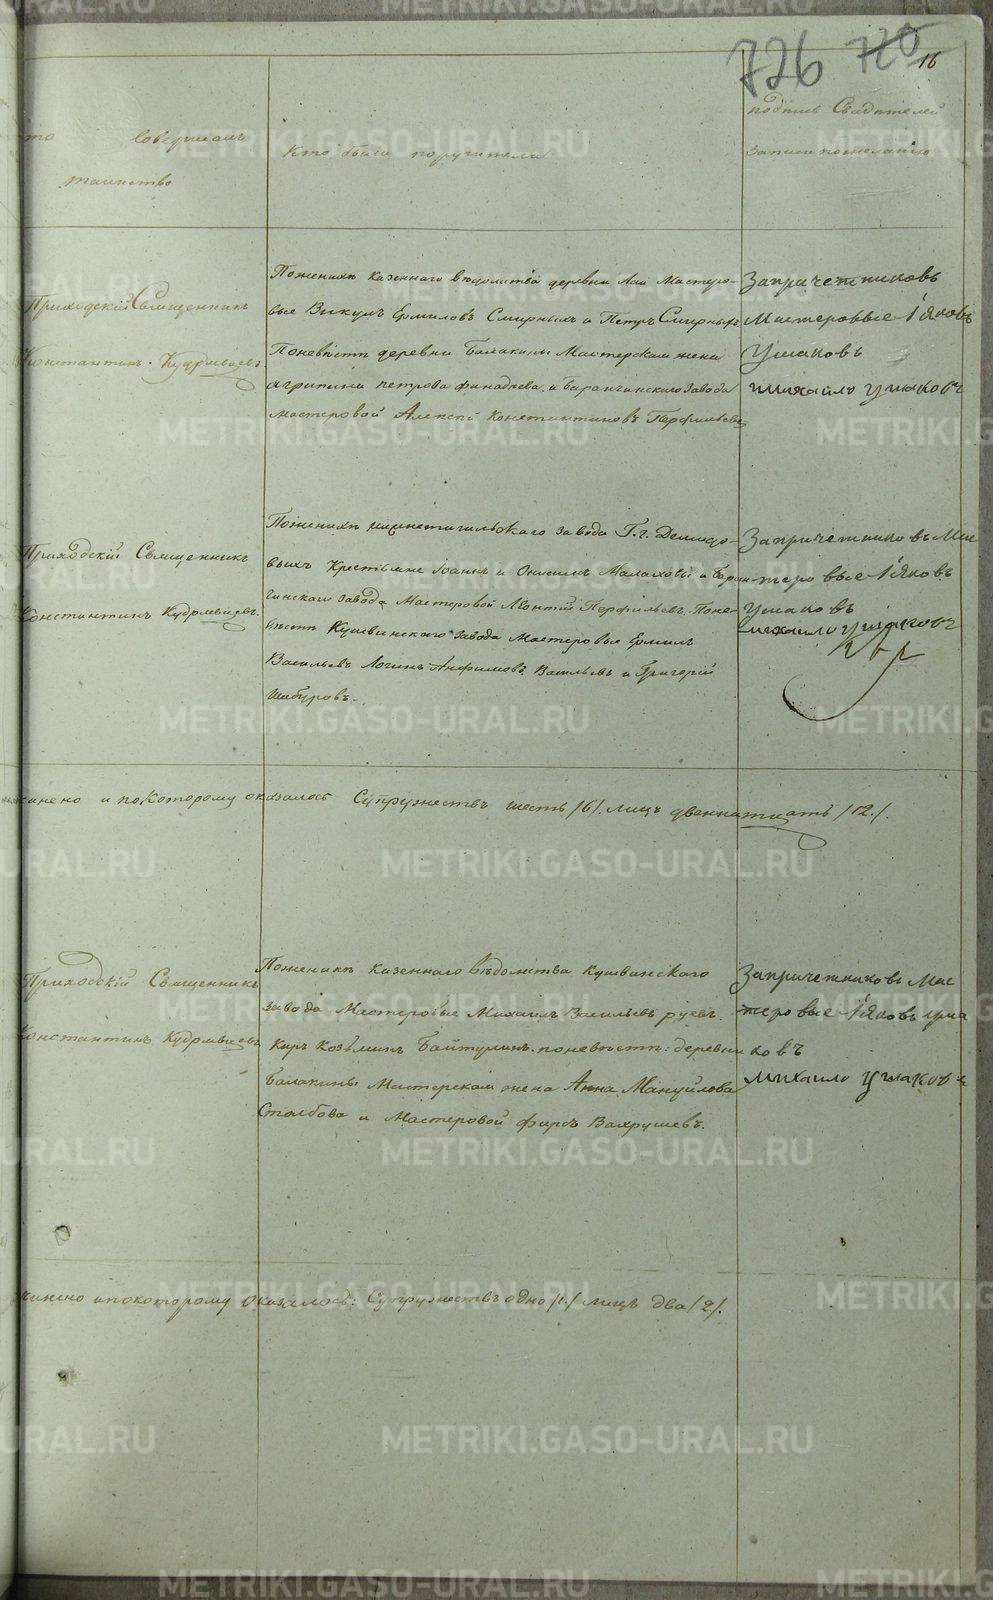 726 720 16
то Совершалъ
таинство
Кто были поручители
подпись Свидѣтелей
записи по желанію
Приходскій Священникъ
Константинъ Кудрявцевъ
Поженихѣ казеннаго вѣдомства деревни Лаи Мастеро-
вые Викулъ Ермиловъ Смирныхъ и Петръ Смирныхъ
Поневѣстѣ деревни Балакины Мастерская жена
агрипина петрова финадѣева и Баранчинскаго завода
мастеровой Алексѣй Константиновъ Перфильевъ
Запричетниковъ
Мастеровые Іяковъ
Ушаковъ
михайло ушаковъ
Приходскій Священникъ
Константинъ Кудрявцевъ.
Поженихѣ нижнетагильскаго завода Г.г. Демидо-
выхъ Крестьяне Іоаннъ и Онисимъ Малаховы и Баран-
чинскаго завода Мастеровой Леонтій Перфильевъ. Поне-
вѣстѣ Кушвинскаго завода Мастеровые Ермилъ
Васильевъ Логинъ Анфимовъ Васильевъ и Григорій
Шабуровъ.
Запричетниковъ Мас
теровые Іяковъ
Ушаковъ
михаило ушаковъ
чинено и покоторому оказалось Супружествъ шесть /6/. лицъ двенатцать /12./.
Приходскій Священникъ
Константинъ Кудрявцевъ
Поженихѣ казеннаго вѣдомства кушвинскаго
завода Мастеровые Михаилъ Васильевъ
Киръ Козьминъ Байтулинъ. поневѣстѣ: деревни
Балакины Мастерская жена Анна Мануйлова
Столбова и Мастеровой фирсъ Вахрушевъ.
Запричетниковъ Мас
теровые Іяковъ Уша
ковъ
михаило ушаковъ
чинено ипокоторому оказалось: Супружествъ одно /1./ лицъ два /2/.
METRIKI.GASO-URAL.RU